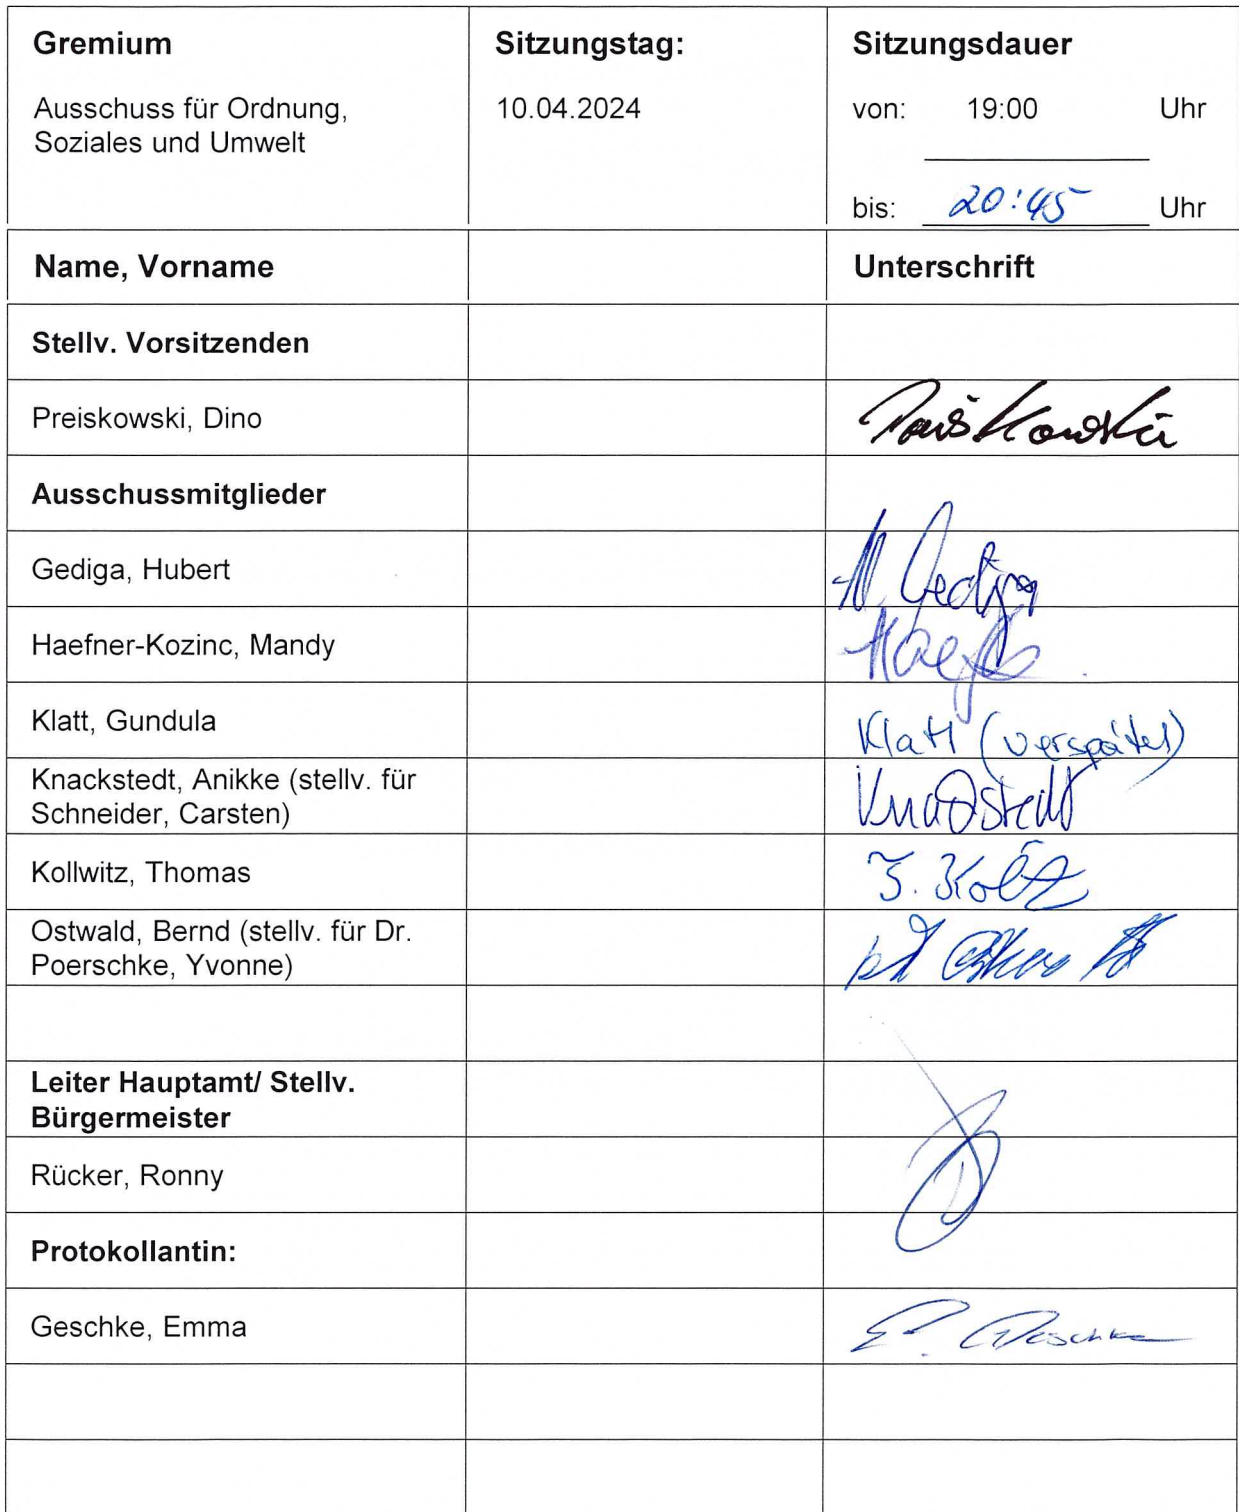 Gremium Sitzungstag: Sitzungsdauer
Ausschuss für Ordnung, 10.04.2024 von: 19:00 Uhr
Soziales und Umwelt
bis: 20:45 Uhr
Name, Vorname Unterschrift
Stellv. Vorsitzenden
Preiskowski, Dino
Ausschussmitglieder
Gediga, Hubert H. Gediga
Haefner-Kozinc, Mandy
Klatt, Gundula Klatt (verspätet)
Knackstedt, Anikke (stellv. für
Schneider, Carsten) Knackstedt
Kollwitz, Thomas
Ostwald, Bernd (stellv. für Dr.
Poerschke, Yvonne)
Leiter Hauptamt/ Stellv.
Bürgermeister
Rücker, Ronny
Protokollantin:
Geschke, Emma E. Geschke